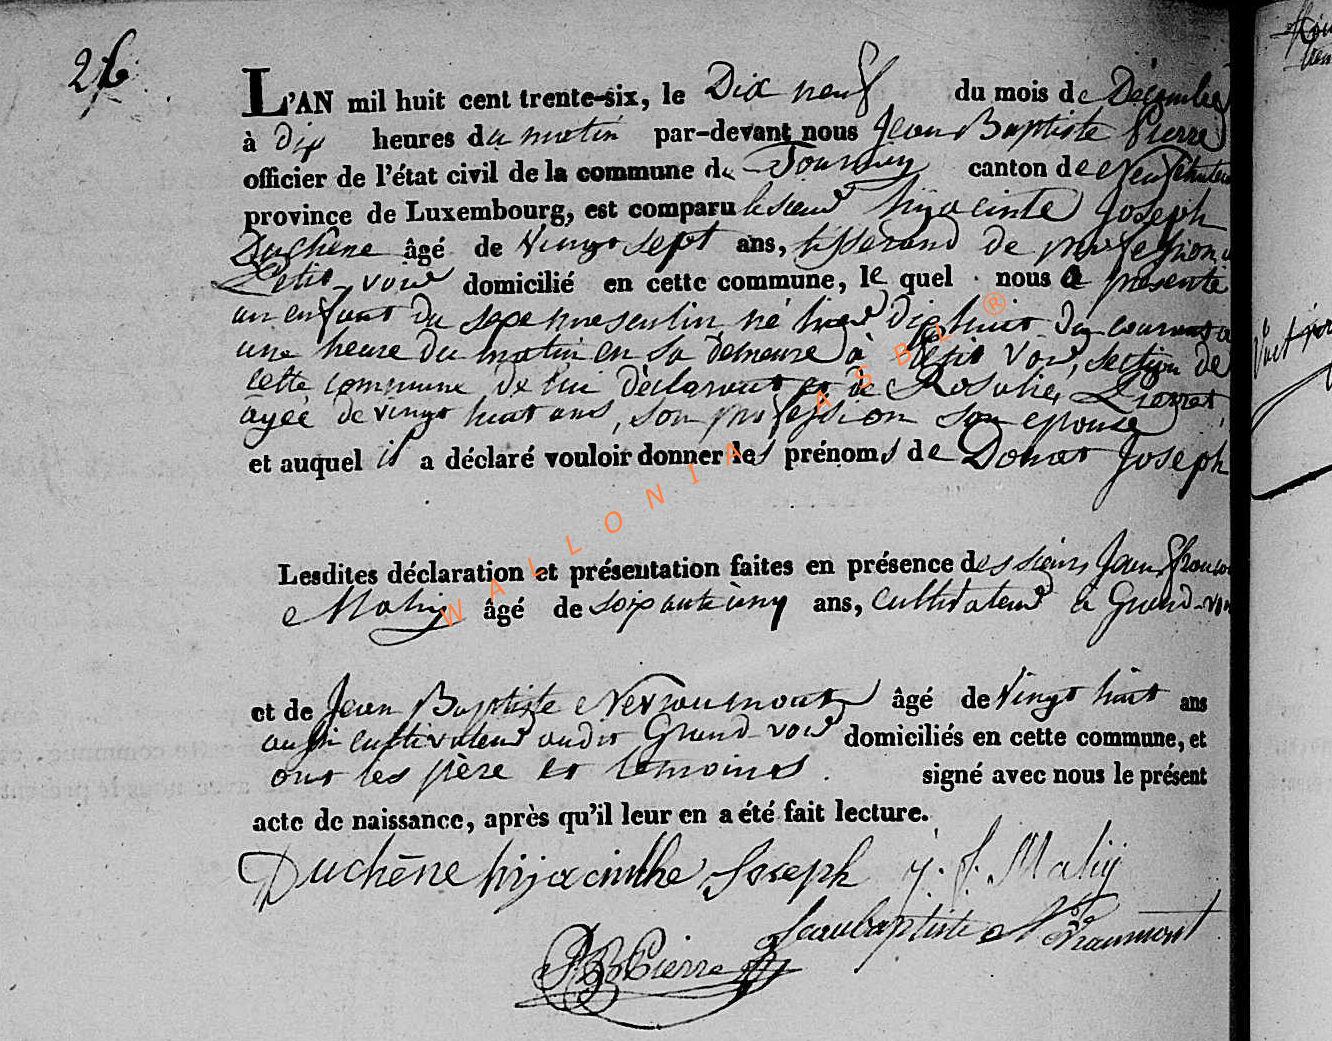 26
L'AN mil huit cent trente-six, le Dix neuf du mois de Décembre
à dix heures du matin par-devant nous Jean Baptiste Pierre
officier de l'état civil de la commune de Tournay canton de Neufchateau
province de Luxembourg, est comparu le sieur hijacinte Joseph
Duchêne âgé de Vingt sept ans, tisserand de profession a
Petit-voir domicilié en cette commune, le quel nous a présenté
un enfant du sexe masculin né hier dix huit du courant a
une heure du matin en sa demeure à Petit Voir, section de
cette commune de lui déclarant et de Rosalie Pierret
agée de vingt huit ans, son profession son epouse
et auquel il a déclaré vouloir donner les prénoms de Donat Joseph
Lesdites déclaration et présentation faites en présence des sieurs Jean Francois
Mahij âgé de soixante ans, cultivateur à Grand-voir
et de Jean Baptiste âgé de Vingt huit ans
aussi cultivateur audit Grand-voir domiciliés en cette commune, et
ont les père et temoins. signé avec nous le présent
acte de naissance, après qu'il leur en a été fait lecture.
Duchêne hijacinthe Joseph j. f. Mahij
Jeanbaptiste
JB Pierre
WALLONIA ASBL ®